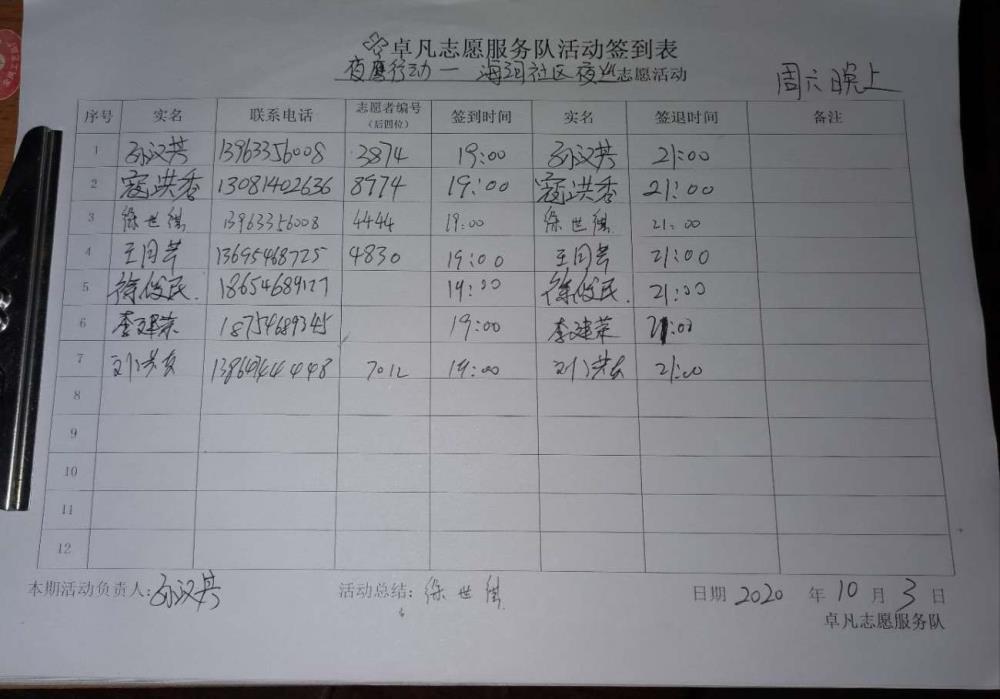 卓凡志愿服务队活动签到表
夜鹰行动一海河社区夜巡志愿活动
周六晚上
序号 实名 联系电话 志愿者编号（后四位） 签到时间 实名 签退时间 备注
1 孙汉芸 13963356008 3874 19:00 孙汉芸 21:00
2 寇洪香 13081402636 8974 19:00 寇洪香 21:00
3 徐世樻 13963356008 4444 19:00 徐世樻 21:00
4 王同芹 13695468725 4830 19:00 王同芹 21:00
5 徐俊民. 18654689127 19:00 徐俊民. 21:00
6 李建荣 18754689345 19:00 李建荣 21:00
7 刘洪友 7012 19:00 刘洪友 21:00
8
9
10
11
12
本期活动负责人:孙汉芸 活动总结: 徐世樻 日期 2020 年 10 月 3 日
卓凡志愿服务队